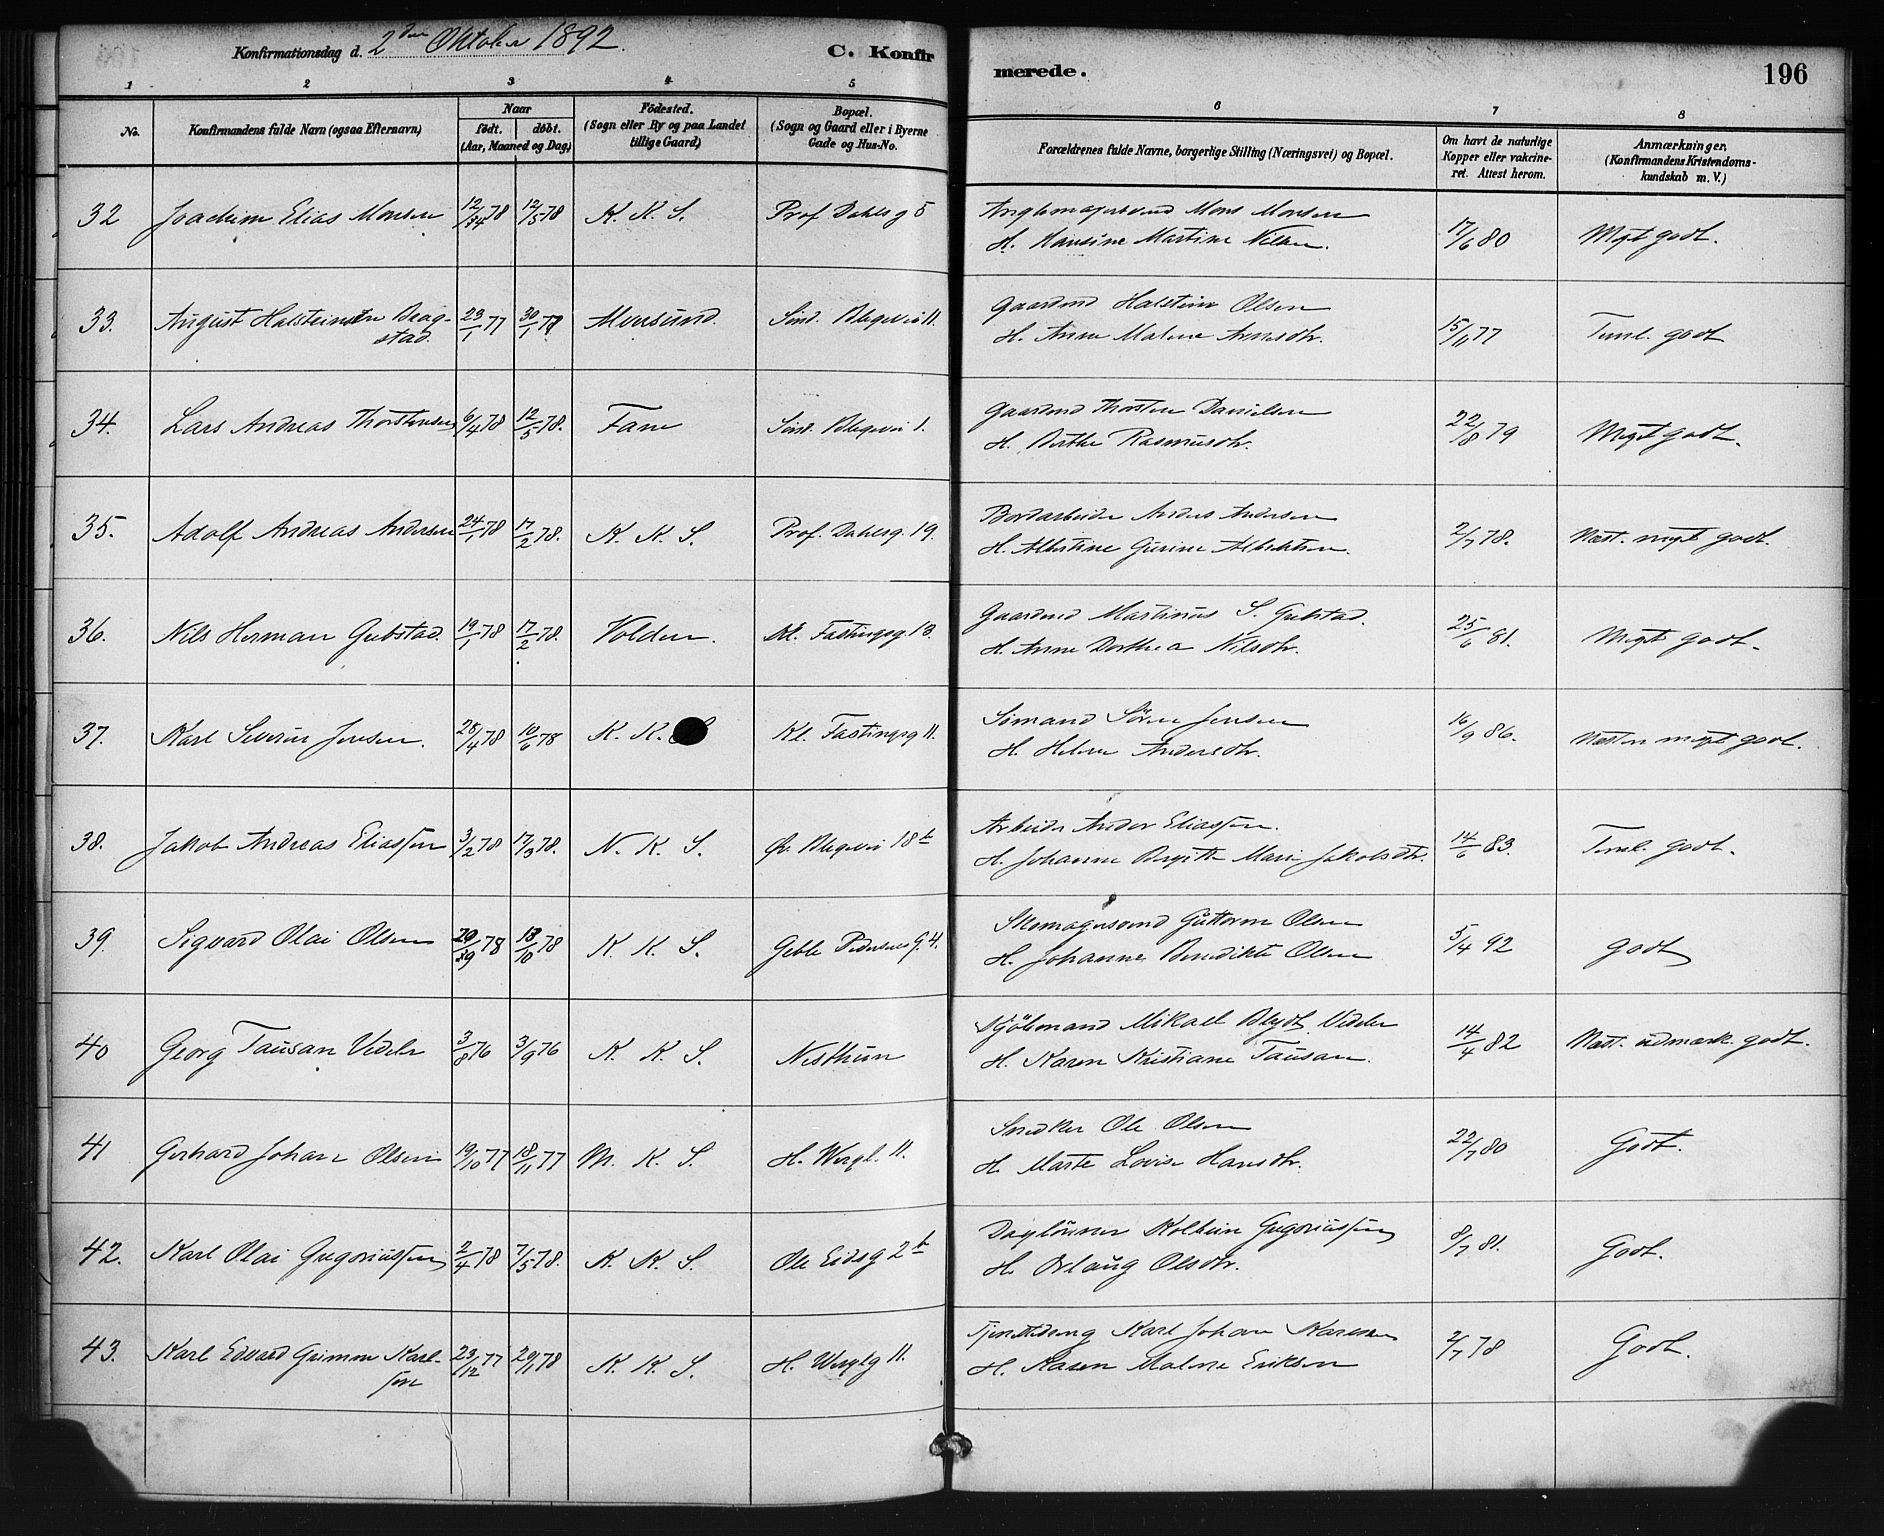 Konfirmationsdag d. 2den Oktober 1892. C. Konfirmerede. 196
1 2 3 4 5 6 7 8
No. Konfirmandens fulde Navn (ogsaa Efternavn) Naar født. døbt. (Aar, Maaned og Dag) Fødested. (Sogn eller By og paa Landet tillige Gaard) Bopæl. (Sogn og Gaard eller i Byerne Gade og Hus-No. Forældrenes fulde Navne, borgerlige Stilling (Næringsvei) og Bopæl. Om havt de naturlige Kopper eller vakcineret. Attest herom. Anmærkninger, (Konfirmandens Kristendomskundskab m. V.)
32 Joachim Elias Monsen 12/5 78 K. K. S. Prof Dahlsg 5 Mons Monsen 17/6 80 Mgt godt.
H. Hansine Martine Nilsen.
33. August Halsteinsen Dragstad. 23/1 77 30/1 77 Sind. Blegevei 11. Gaardmd Halstein Olsen 15/11 77 Teml. godt
H. Anne Malene Arnesdtr.
34. Lars Andreas Thorstensen 6/4 78 12/5 78. Fane Sind. Blegevei 1. Gaardmd Thorsten Danielsen 22/8 79 Meget godt.
H. Berthe Rasmusdtr.
35. Adolf Andreas Andersen 24/1 78 17/2 78. K. K. S. Prof. Dahlsg. 19. Bordarbeider Anders Andersen 2/7 78. Næst. mgt godt.
H. Albertine Gurine Albertsen.
36. Nils Herman Gubstad. 19/1 78 17/2 78. Volden. Kl. Fastingsg. 13. Gaardmd Martinus S. Gubstad. 25/6 81. Meget godt.
H. Anne Dorthea Nilsdtr.
37. Karl Severin Jensen. 28/4 78 10/6 78 K. K. S Kl. Fastingsg 11. Sømand Søren Jensen 16/9 86. Næsten meget godt.
H. Helene Andersdtr.
38. Jakob Andreas Eliassen 3/2 78 17/3 78. N. K. S. Øv. Blegevei 18b Arbeider Andor Eliassen. 14/6 83. Teml. godt.
H. Johanne Birgitte Marie Jakobsdtr.
39. Sigvard Olai Olsen 13/10 78 K. K. S. Geble Pedersens G. 4. Skomagersvend Guttorm Olsen 5/4 92 godt
H. Johanne Benedikte Olsen
40 Georg Tausan Vedeler 3/8 76 3/9 76 K. K. S. Nesthun Mikael Blydt Vedeler 14/4 82 Næst. udmærk. godt.
H. Karen Kristiane Tausan.
41 Gerhard Johan Olsen 19/10 77 18/11 77 M. K. S. H. Wergl. 11. Snedker Ole Olsen 22/7 80 Godt.
H. Marte Lovise Hansdtr.
42. Karl Olai Gregoriussen 2/4 78 7/5 78. K. K. S. Ole Eidsg 2b Daglønner Kolbein Gregoriussen 8/7 81. Godt.
H. Orlaug Olsdtr.
43. Karl Edvard Grimm Karlsen 23/12 77 20/1 78 K. K. S. H. Werglg 11. Karl Johan Karlsen 2/7 78 Godt.
H. Karen Malene Eriksen